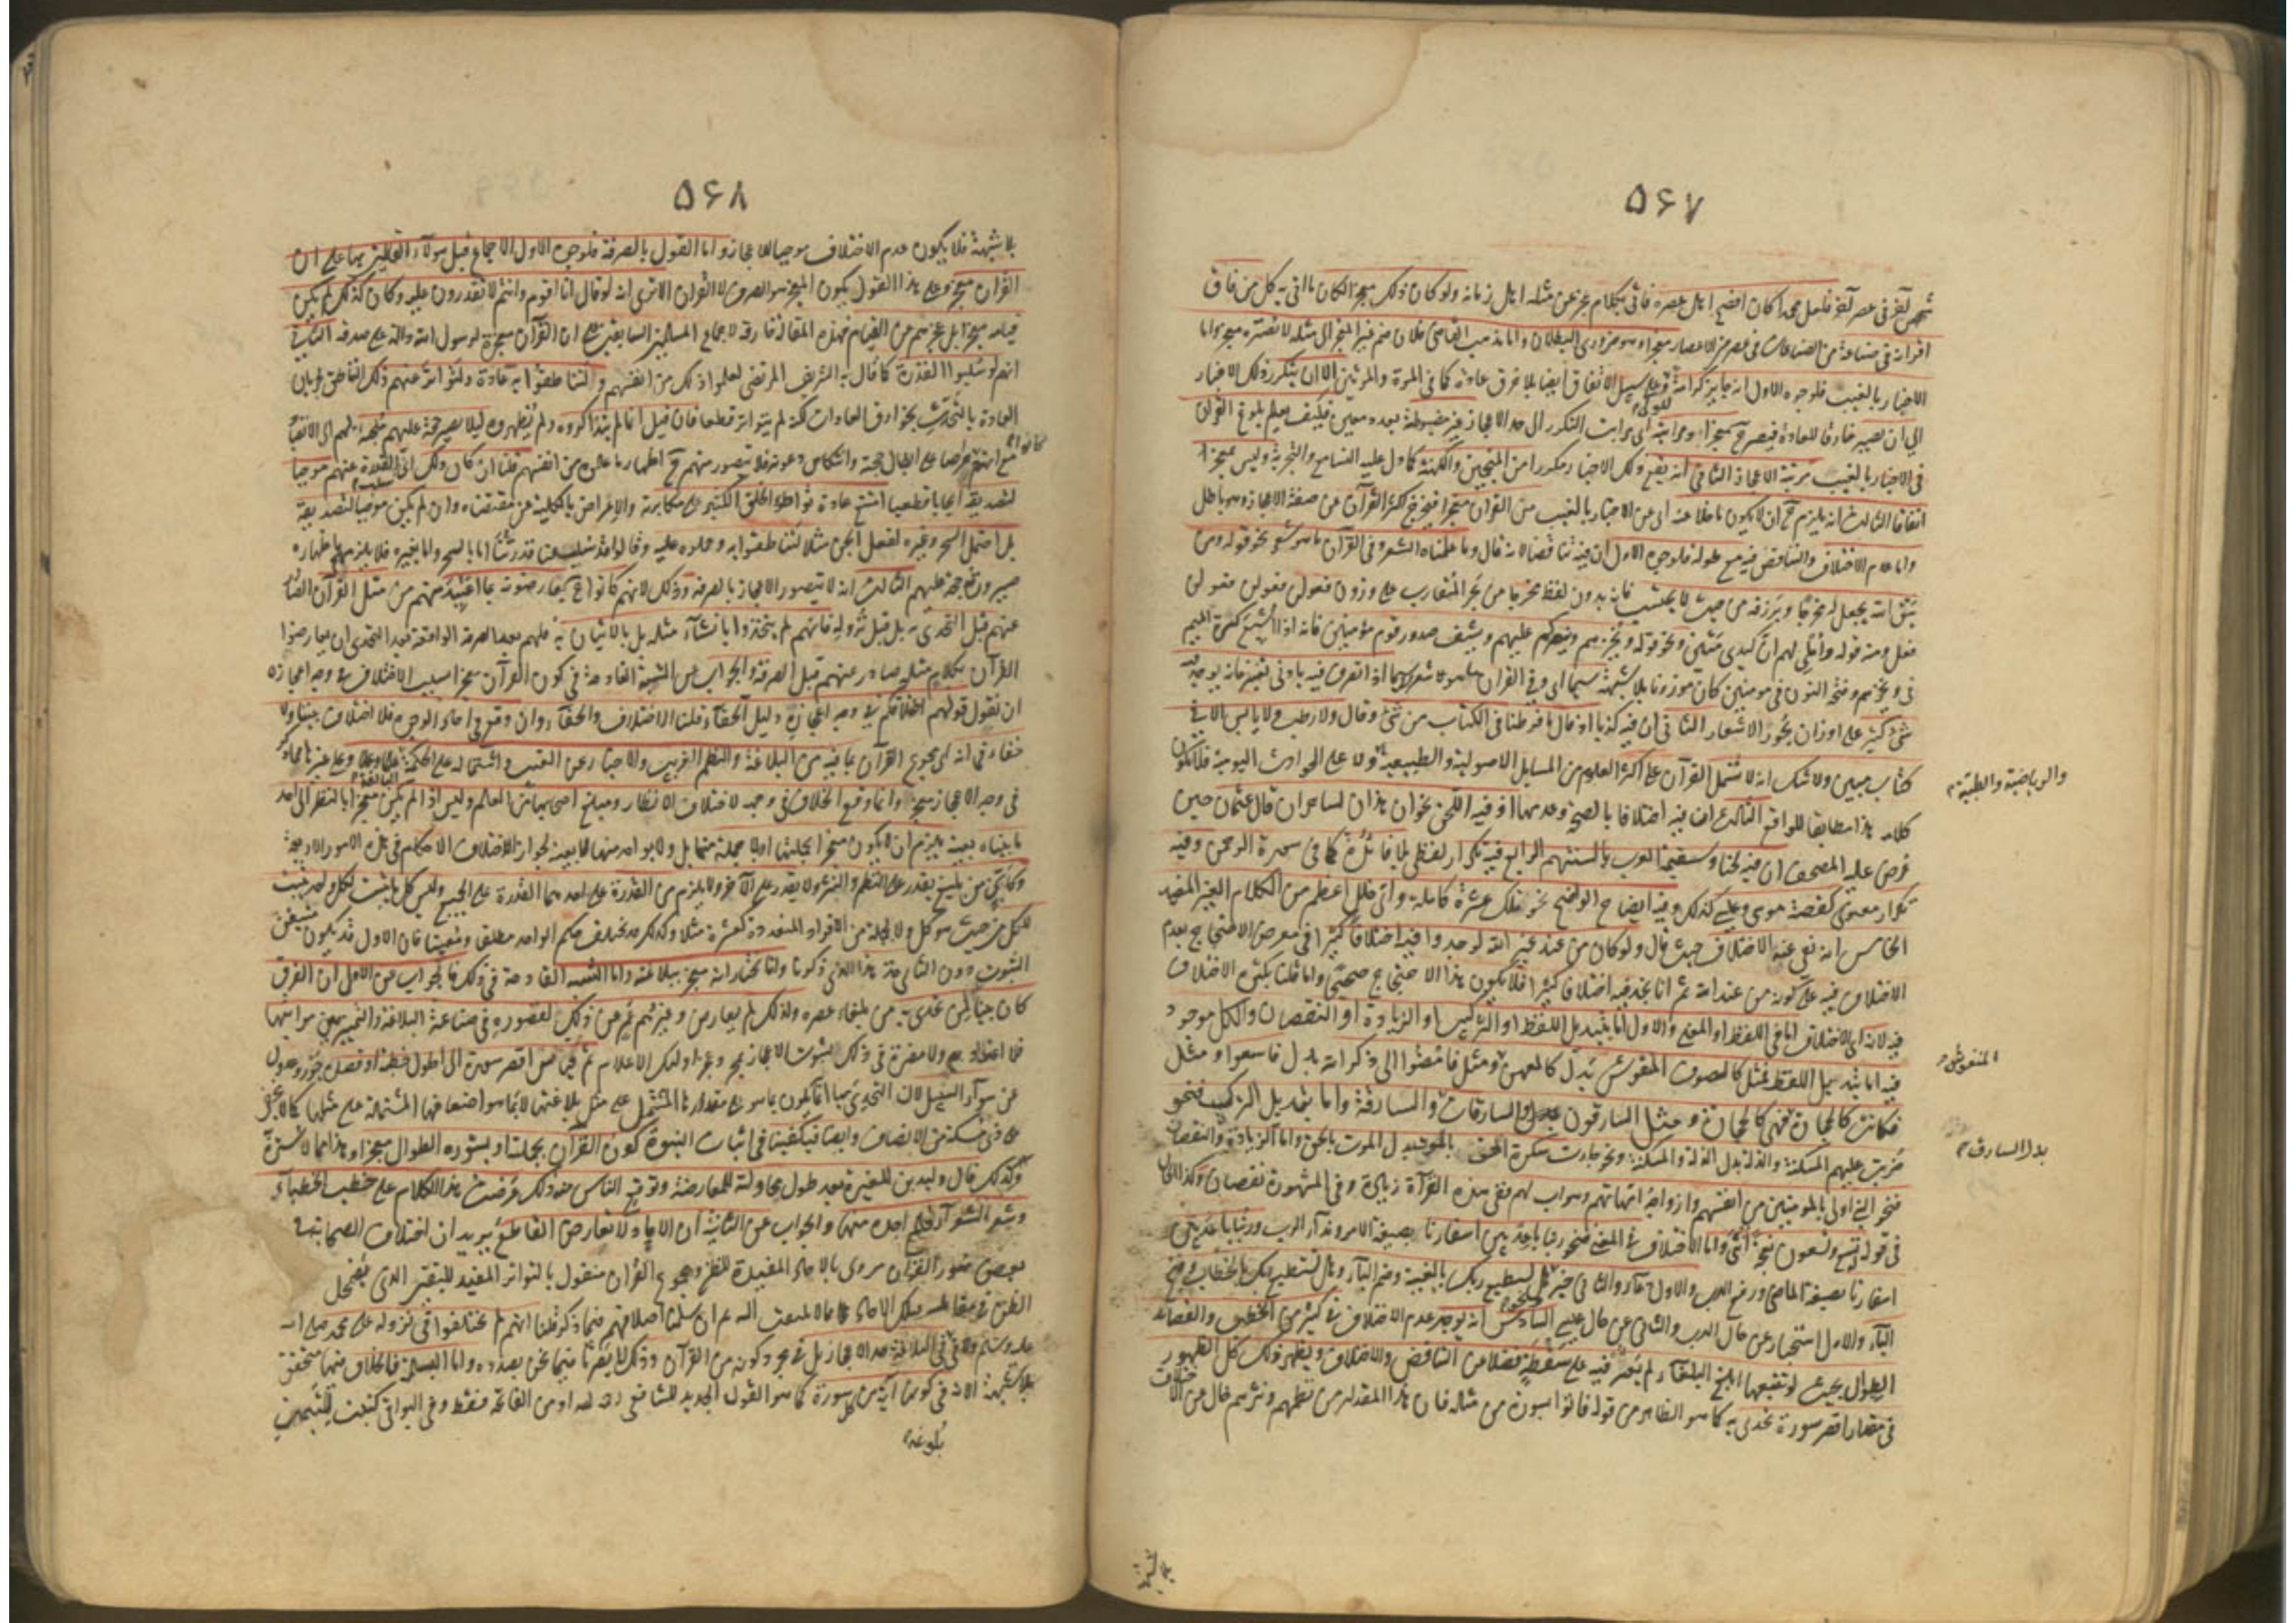 ٥٦٧
شخص آخر في عصر آخر فلعل محمدا كان افصح اهل عصره فاتى بكلام عجز عن مثله اهل زمانه ولو كان ذلك معجزا لكان ما اتى به كل من فاق
اقرانه في صناعة من الصناعات في عصر من الاعصار معجزا وهو ضروري البطلان واما مذهب القاضي فلان ضم غير المعجز الى مثله لا يصيره معجزا واما
الاخبار بالغيب فلوجوه الاول انه جايز كرامة وعلى سبيل الاتفاق ايضا بلا خرق عادة كما في المرة والمرتين الا ان يتكرر ذلك الاخبار
الى ان يصير خارقا للعادة فيصير ح معجزا ومراتبه اى مراتب التكرر الى حد الاعجاز غير مضبوطة بعدد معين فكيف يعلم بلوغ القرآن
في الاخبار بالغيب مرتبة الاعجاز الثاني انه يقع ذلك الاخبار مكررا من المنجمين والكهنة كما دل عليه التسامع والتجربة وليس بمعجز
اتفاقا الثالث انه يلزم ح ان لا يكون ما خلا عنه اى عن الاخبار بالغيب من القرآن معجزا فيخرج اكثر القرآن عن صفة الاعجاز وهو باطل
واما عدم الاختلاف والتناقض فيه مع طوله فلوجوه الاول ان فيه تناقضا لانه قال وما علمناه الشعر وفي القرآن ما هو شعر نحو قوله ومن
يتق الله يجعل له مخرجا ويرزقه من حيث لا يحتسب فانه بدون لفظ مخرجا من بحر المتقارب على وزن فعولن فعولن فعولن
فعل ومنه قوله واملي لهم ان كيدي متين ونحو قوله ويخزهم وينصركم عليهم ويشف صدور قوم مؤمنين فانه اذا اشبع كسرة الميم
في ويخزهم وفتح النون في مومنين كان موزونا بلا شبهة
شئ كثير على اوزان بحور الاشعار الثاني ان فيه كذبا اذ قال ما فرطنا في الكتاب من شئ وقال ولا رطب ولا يابس الا في
كتاب مبين ولا شك انه لا يشتمل القرآن على اكثر العلوم من المسايل الاصولية والطبيعية ولا على الحوادث اليومية فلا يكون
والرياضية والطبية
كلامه هذا مطابقا للواقع الثالث ان فيه اختلافا بالصحة وعدمها اذ فيه اللحن نحو ان هذان لساحران قال عثمان حين
عرض عليه المصحف ان فيه لحنا وستقيمه العرب بالسنتهم الرابع فيه تكرار لفظي بلا فائدة كما في سورة الرحمن وفيه
تكرار معنوي كقصة موسى وعيسى كذلك وفيه ايضاح الواضح نحو تلك عشرة كاملة واي خلل اعظم من الكلام الغير المفيد
الخامس انه نفى عنه الاختلاف حيث قال ولو كان من عند غير الله لوجدوا فيه اختلافا كثيرا في معرض الاحتجاج بعدم
الاختلاف فيه على كونه من عند الله ثم انا نجد فيه اختلافا كثيرا فلا يكون هذا الاحتجاج صحيحا وانما قلنا بكثرة الاختلاف
فيه لانه اى الاختلاف اما في اللفظ او المعنى والاول اما بتبديل اللفظ او التركيب او الزيادة او النقصان والكل موجود
فيه اما تبديل اللفظ فمثل كالصوف المنقوش بدل كالعهن ومثل فامضوا الى ذكر الله بدل فاسعوا ومثل
المنفوش
فكانت كالحجارة فهي كالحجارة ومثل السارقون والسارقات والسارقة واما تبديل التركيب فنحو
بدل السارق
ضربت عليهم المسكنة والذلة بدل الذلة والمسكنة ونحو جاءت سكرة الحق بالموت بدل الموت بالحق واما الزيادة والنقصان
فنحو النبي اولى بالمومنين من انفسهم وازواجه امهاتهم وهو اب لهم ففي هذه القرآة زيادة وفي المشهورة نقصان وكذا الحال
في قوله تسع وتسعون نعجة انثى واما الاختلاف في المعنى فنحو ربنا باعد بين اسفارنا بصيغة الامر ونداء الرب وربنا باعد بين
اسفارنا بصيغة الماضي ورفع الرب والاول دعاء والثاني خبر ونحو هل يستطيع ربك بالغيبة وضم الباء وهل تستطيع ربك بالخطاب وفتح
الباء والاول استخبار عن حال الرب والثاني عن حال عيسى السادس انه يوجد عدم الاختلاف في كثير من الخطب والقصائد
الطوال بحيث لو تتبعها ابلغ البلغاء لم يعثر فيه على سقطة فضلا عن التناقض والاختلاف ويظهر ذلك كل الظهور
في مقدار اقصر سورة تحدى به كما هو الظاهر من قوله فاتوا بسورة من مثله فان هذا المقدار من نظمهم ونثرهم خال عن الاختلاف
بلا شبهة
٥٦٨
بلا شبهة فلا يكون عدم الاختلاف موجبا للاعجاز واما القول بالصرفة فلوجوه الاول الاجماع قبل هولاء القائلين بها على ان
القران معجز وعلى هذا القول يكون المعجز هو الصرفة لا القران الا ترى انه لو قال انا اقوم وانتم لا تقدرون عليه وكان كذلك لم يكن
قيامه معجزا بل عجزهم عن القيام فهذه المقالة خارقة لاجماع المسلمين السابقين على ان القرآن معجزة لرسول الله دالة على صدقه الثاني
انهم لو سلبوا القدرة كما قال به الشريف المرتضى لعلموا ذلك من انفسهم ولتناطقوا به عادة ولتواتر عنهم ذلك التناطق لجريان
العادة بالتحدث بخوارق العادات لكنه لم يتواتر قطعا فان قيل انما لم يتذاكروه ولم يظهروه ليلا يصير حجة عليهم ملجئة لهم الى الانقياد
مع انهم كانوا حراصا على ابطال حجته وانتكاس دعوته فلا يتصور منهم ح اظهار ما علموه من انفسهم قلنا ان كان ذلك اى سلب القدرة عنهم موجبا
لتصديقه ايجابا قطعيا امتنع عادة تواطؤ الخلق الكثير على مكابرته والاعراض بالكلية عن مقتضاه وان لم يكن موجبا لتصديقه
بل احتمل السحر وغيره لفعل الجن مثلا لتناطقوا به وحملوه عليه وقالوا قد سلب عنا قدرتنا اما بالسحر واما بغيره فلا يلزمهم باظهاره
صيرورته حجة عليهم الثالث انه لا يتصور الاعجاز بالصرفة وذلك لانهم كانوا ح يعارضونه بما اعتيد منهم من مثل القرآن الصادر
عنهم قبل التحدى به بل قبل نزوله فانهم لم يتحدوا بانشاء مثله بل بالاتيان به فلهم بعد الصرفة الواقعة بعد التحدى ان يعارضوا
القرآن بكلام مثله صادر عنهم قبل الصرفة والجواب عن الشبه القادحة في كون القرآن معجزا بسبب الاختلاف في وجه اعجازه
ان نقول قولهم اختلافكم في وجه اعجازه دليل الخفاء قلنا الاختلاف والخفاء وان وقع في احاد الوجوه فلا اختلاف بيننا ولا
خفاء في انه اى مجموع القرآن بما فيه من البلاغة والنظم الغريب والاخبار عن الغيب واشتماله على الحكمة البالغة علما وعملا وعلى غيرها مما ذكر
في وجه الاعجاز معجز وانما وقع الخلاف في وجهه لاختلاف الانظار ومبلغ اصحابها من العلم وليس اذا لم يكن معجزا بالنظر الى احد
ما بيناه بعينه يلزم ان لا يكون معجزا بجملتها او بجملة منها بل ولا بواحد منها لا بعينه لجواز اختلاف الاحكام في هذه الامور الاربعة
وكاين من بليغ يقدر على النظم والنثر ولا يقدر على الآخر ولا يلزم من القدرة على احدهما القدرة على الجميع وليس كل ما يثبت لكل واحد يثبت
للكل من حيث هو كل ولا لجملة من الافراد المتعددة كعشرة مثلا وكذلك قد يختلف حكم الواحد مطلقا ومعينا فان الاول قد يكون متيقن
الثبوت دون الثاني هذا الذي ذكرنا وانا نختار انه معجز ببلاغته واما الشبه القادحة في ذلك فالجواب عن الاول ان الفرق
كان بينا لمن تحدى به من بلغاء عصره ولذلك لم يعارض وغيرهم عمى عن ذلك لقصوره في صناعة البلاغة والتمييز بين مراتبها
فلا اعتداد به ولا مضرة في ذلك لثبوت الاعجاز بمجرد عجز اولئك الاعلام ثم قيس اقصر سورة الى اطول خطبة او قصيدة جور وعدول
عن سواء السبيل لان التحدى بها انما يكون بما هو على مقدارها المشتمل على مثل بلاغتها لا بما هو اضعافها المشتملة على مثلها كما لا يخفى
على ذي مسكة من الانصاف وايضا فيكفينا في اثبات النبوة كون القرآن بجملته او بسوره الطوال معجزا وهذا مما لا سترة به
ولذلك قال وليد بن المغيرة بعد طول محاولته للمعارضة وتوقع الناس منه ذلك عرضت هذا الكلام على خطب الخطباء
وشعر الشعراء فلم اجده منها والجواب عن الثانية ان الاحاد لا تعارض القاطع يريد ان اختلاف الصحابة في
بعض سور القران مروى بالاحاد المفيدة للظن ومجموع القران منقول بالتواتر المفيد لليقين الذي يضمحل
الظن في مقابله فتلك الاحاد مما لا يلتفت اليه ثم ان سلمنا اختلافهم فيما ذكر قلنا انهم لم يختلفوا في نزوله على محمد صلى الله
عليه وسلم ولا في بلوغه في البلاغة حد الاعجاز بل في مجرد كونه من القرآن وذلك لا يضرنا فيما نحن بصدده واما البسملة فالخلاف فيها متحقق
بلا شبهة الا انه في كونها آية من كل سورة كما هو القول الجديد للشافعي رحمه الله او من الفاتحة فقط وفي البواقي كتبت للتيمن
بلوغه